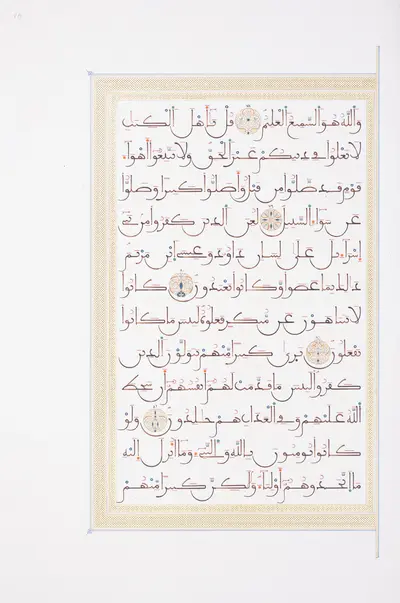 وَاللَّهُ هُوَ السَّمِيعُ الْعَلِيمُ قُلْ يَا أَهْلَ الْكِتَابِ
لَا تَغْلُوا فِي دِينِكُمْ غَيْرَ الْحَقِّ وَلَا تَتَّبِعُوا أَهْوَاءَ
قَوْمٍ قَدْ ضَلُّوا مِن قَبْلُ وَأَضَلُّوا كَثِيرًا وَضَلُّوا
عَن سَوَاءِ السَّبِيلِ لُعِنَ الَّذِينَ كَفَرُوا مِن بَنِي
إِسْرَائِيلَ عَلَى لِسَانِ دَاوُودَ وَعِيسَى ابْنِ مَرْيَمَ
ذَلِكَ بِمَا عَصَوا وَكَانُوا يَعْتَدُونَ كَانُوا
لَا يَتَنَاهَوْنَ عَن مُّنكَرٍ فَعَلُوهُ لَبِئْسَ مَا كَانُوا
يَفْعَلُونَ تَرَى كَثِيرًا مِّنْهُمْ يَتَوَلَّوْنَ الَّذِينَ
كَفَرُوا لَبِئْسَ مَا قَدَّمَتْ لَهُمْ أَنفُسُهُمْ أَن سَخِطَ
اللَّهُ عَلَيْهِمْ وَفِي الْعَذَابِ هُمْ خَالِدُونَ وَلَوْ
كَانُوا يُومِنُونَ بِاللَّهِ وَالنَّبِيءِ وَمَا أُنزِلَ إِلَيْهِ
مَا اتَّخَذُوهُمْ أَوْلِيَاءَ وَلَكِنَّ كَثِيرًا مِّنْهُمْ